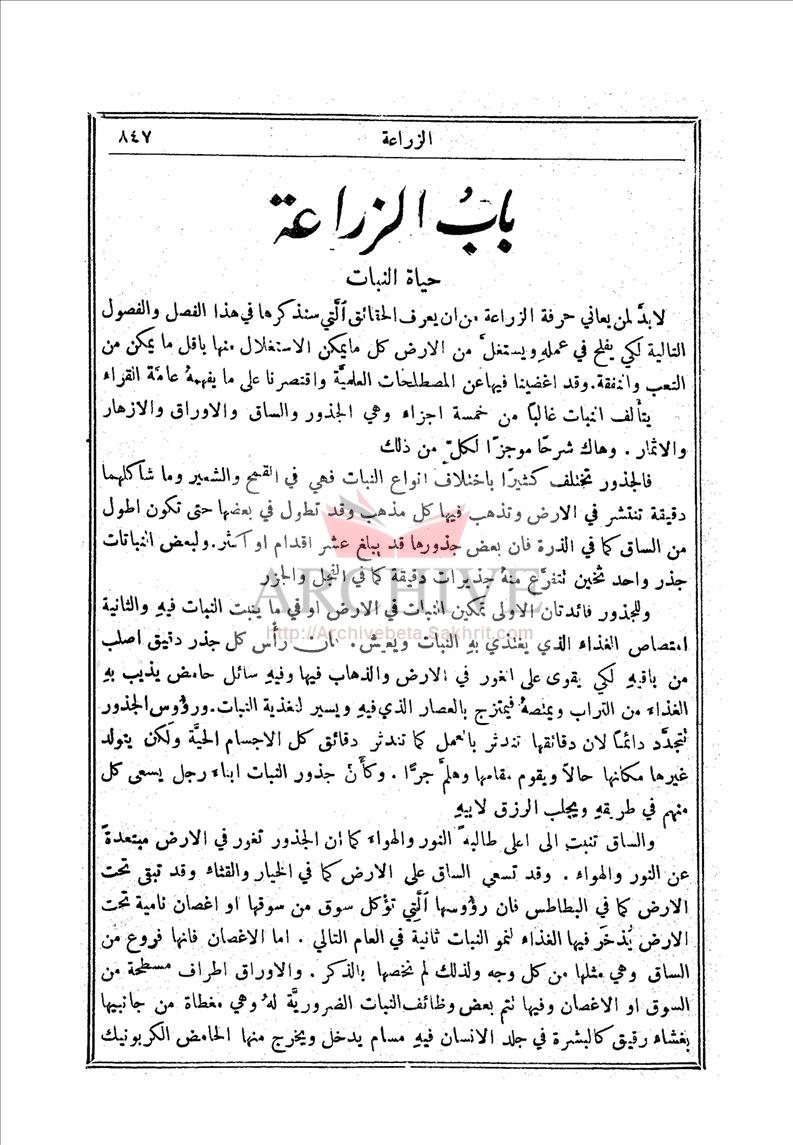 الزراعة ٨٤٧
بابُ الزراعة
حياة النبات
لا بدَّ لمن يعاني حرفة الزراعة من ان يعرف الحقائق الَّتي سنذكرها في هذا الفصل والفصول
التالية لكي يفلح في عملهِ ويستغلَّ من الارض كل ما يمكن الاستغلال منها باقل ما يمكن من
التعب والنفقة. وقد اغضينا فيها عن المصطلحات العلميَّة واقتصرنا على ما يفهمهُ عامَّة القراء
يتألف النبات غالبًا من خمسة اجزاء وهي الجذور والساق والاوراق والازهار
والاثمار . وهاك شرحًا موجزًا لكلّ من ذلك
فالجذور تختلف كثيرًا باختلاف انواع النبات فهي في القمح والشعير وما شاكلهما
دقيقة تنتشر في الارض وتذهب فيها كل مذهب وقد تطول في بعضها حتى تكون اطول
من الساق كما في الذرة فان بعض جذورها قد يبلغ عشر اقدام او اكثر. ولبعض النباتات
جذر واحد ثخين تتفرَّع منهُ جذيرات دقيقة كما في الفجل والجزر
وللجذور فائدتان الاولى تمكين النبات في الارض او في ما ينبت النبات فيهِ والثانية
امتصاص الغذاء الذي يغتذي بهِ النبات ويعيش. فان رأْس كل جذر دقيق اصلب
من باقيهِ لكي يقوى على الغور في الارض والذهاب فيها وفيهِ سائل حامض يذيب بهِ
الغذاء من التراب ويمتصهُ فيمتزج بالعصار الذي فيهِ ويسير لتغذية النبات. ورؤُوس الجذور
تتجدَّد دائمًا لان دقائقها تندثر بالعمل كما تندثر دقائق كل الاجسام الحيَّة ولكن يتولد
غيرها مكانها حالاً ويقوم مقامها وهلمَّ جرًّا . وكأَنَّ جذور النبات ابناء رجل يسعى كل
منهم في طريقهِ ويجلب الرزق لابيهِ
والساق تنبت الى اعلى طالبةً النور والهواء كما ان الجذور تغور في الارض مبتعدةً
عن النور والهواء . وقد تسعى الساق على الارض كما في الخيار والقثاء وقد تبقى تحت
الارض كما في البطاطس فان رؤُوسها الَّتي تؤكل سوق من سوقها او اغصان نامية تحت
الارض يُذخَر فيها الغذاء لنمو النبات ثانية في العام التالي . اما الاغصان فانها فروع من
الساق وهي مثلها من كل وجه ولذلك لم نخصها بالذكر . والاوراق اطراف مسطحة من
السوق او الاغصان وفيها تتم بعض وظائف النبات الضروريَّة لهُ وهي مغطاة من جانبيها
بغشاء رقيق كالبشرة في جلد الانسان فيهِ مسام يدخل ويخرج منها الحامض الكربونيك
ARCHIVE
http://Archivebeta.Sakhrit.com